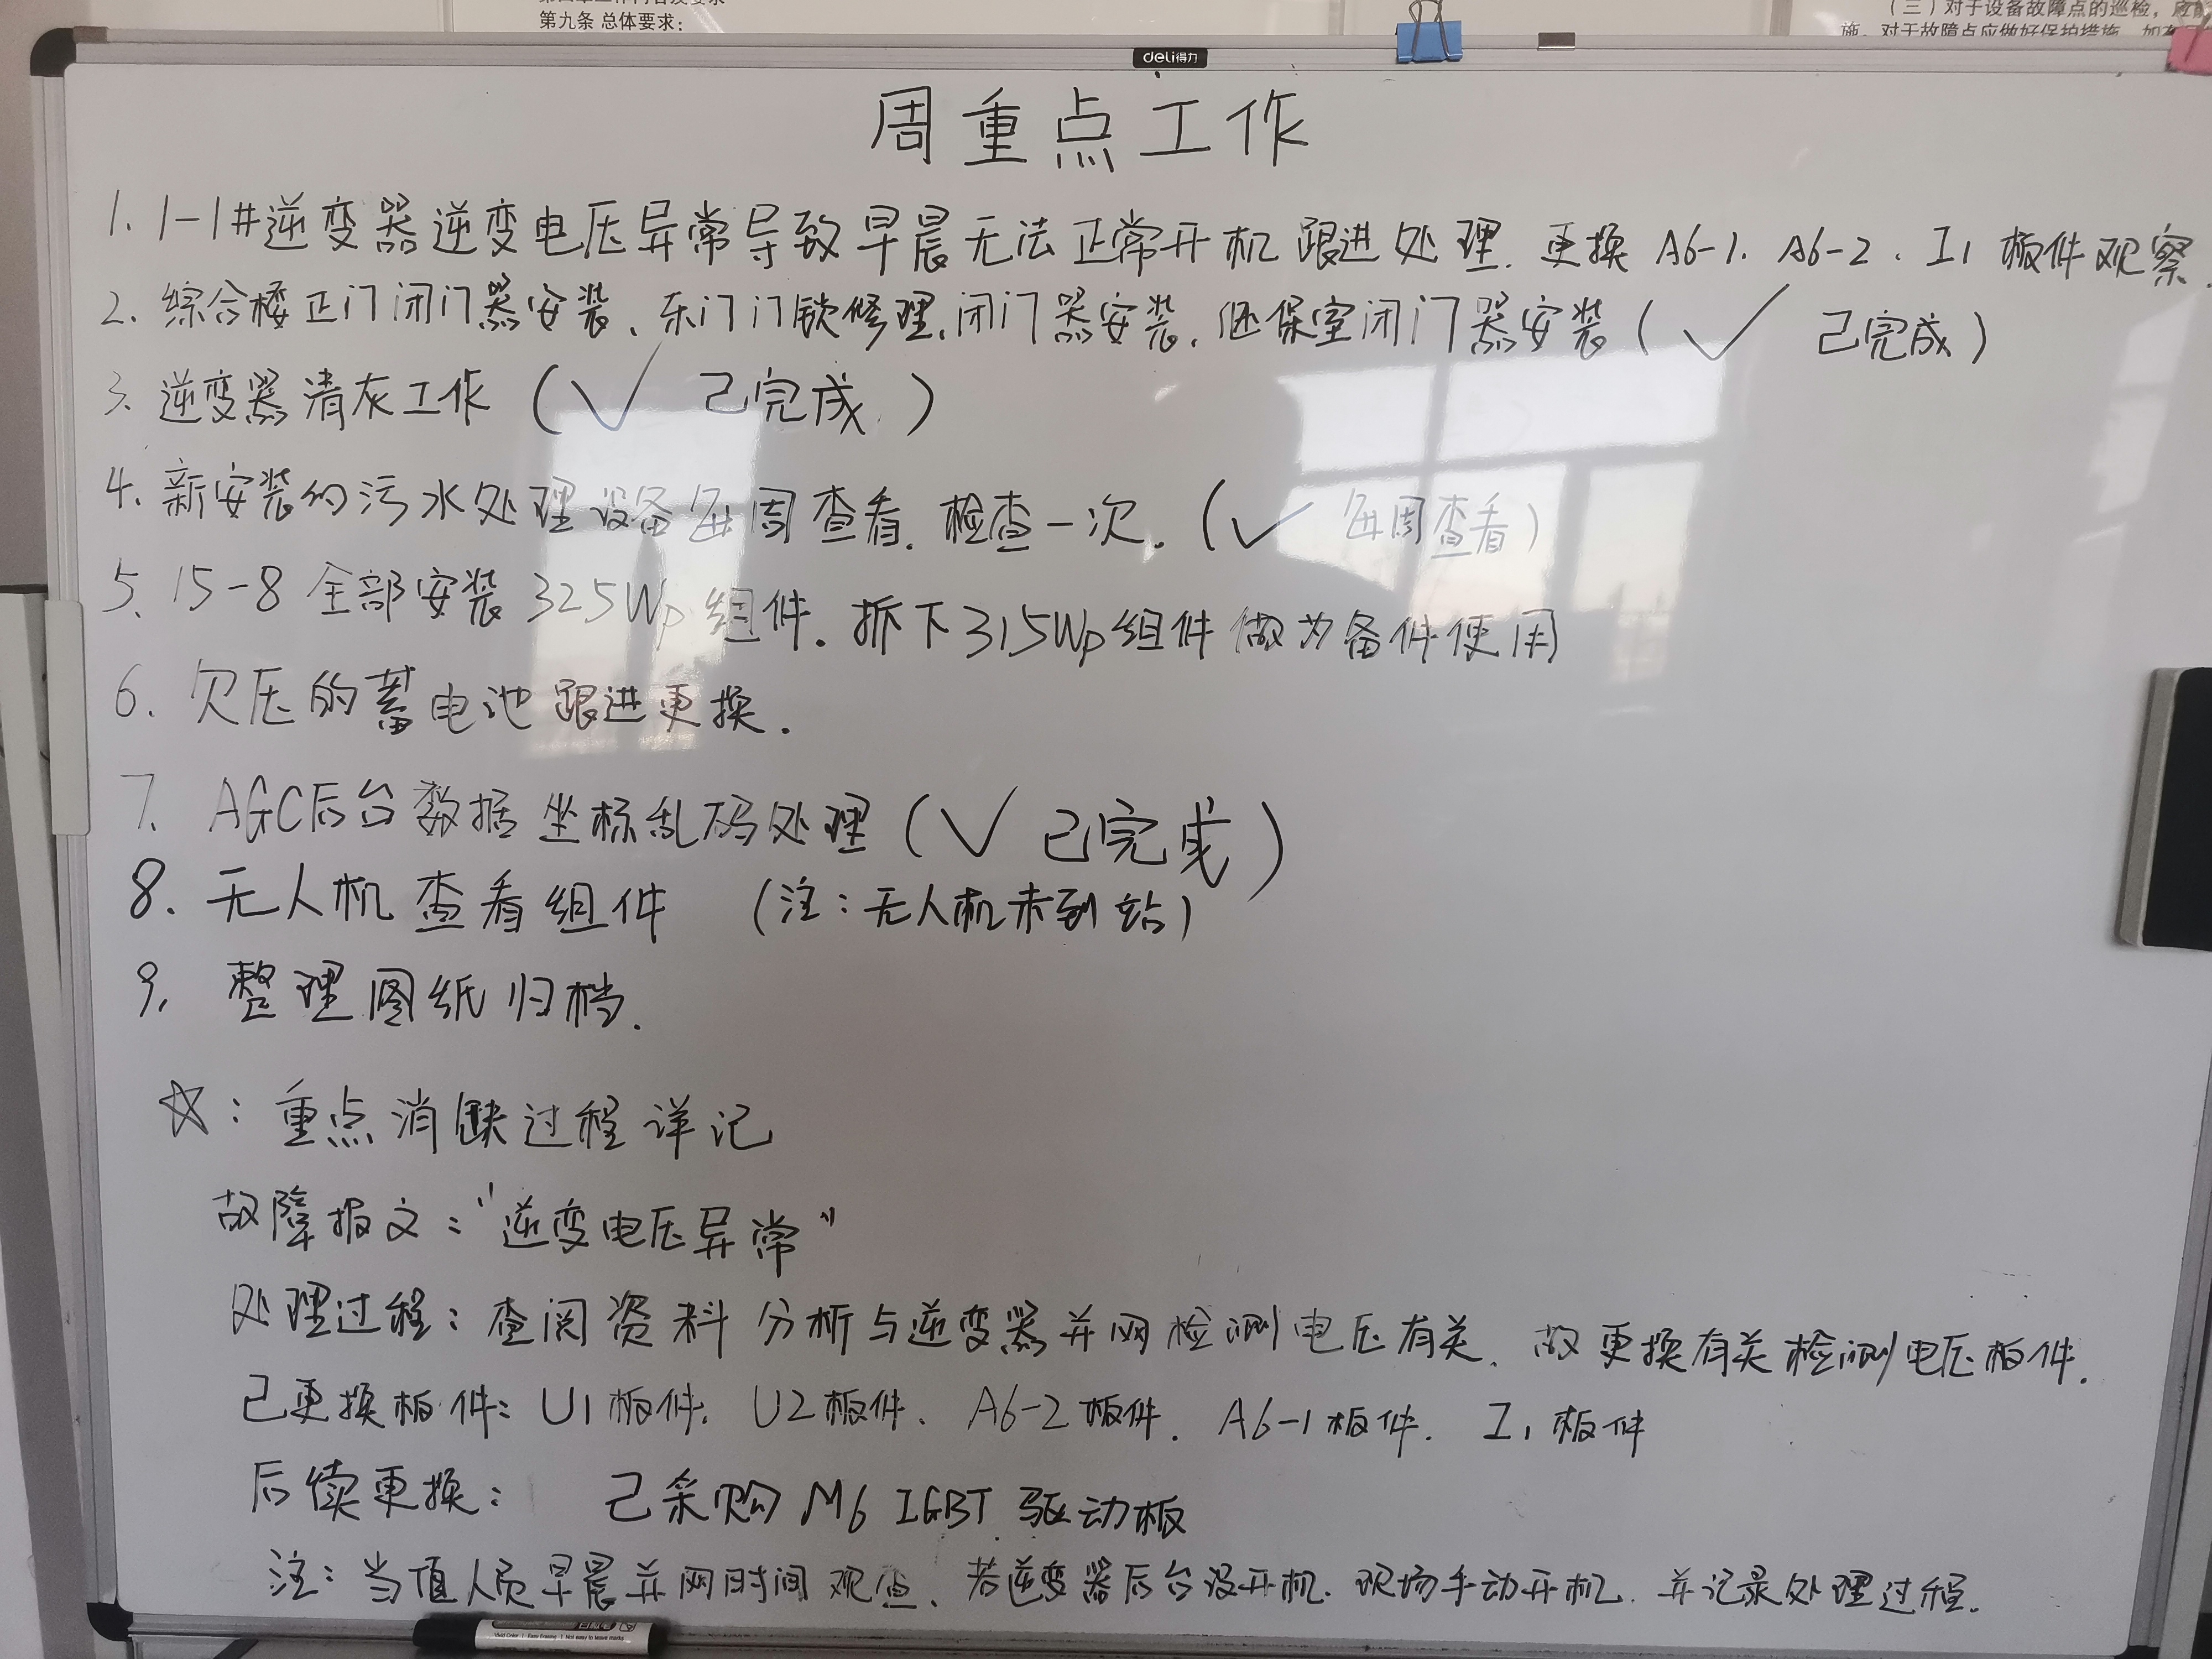 第九条 总体要求:
（三）对于设备故障点的巡检，应
施。对于故障点应做好保护措施，如
deli得力
周重点工作
1. 1-1#逆变器逆变电压异常导致早晨无法正常开机跟进处理. 更换 A6-1、A6-2、I1 板件观察.
2. 综合楼正门闭门器安装、东门门锁修理、闭门器安装、继保室闭门器安装（√ 已完成）
3. 逆变器清灰工作（√ 已完成.）
4. 新安装的污水处理设备每周查看. 检查一次.（√ 每周查看）
5. 15-8 全部安装325Wp组件. 拆下315Wp组件做为备件使用
6. 欠压的蓄电池跟进更换.
7. AGC后台数据坐标乱码处理（√ 已完成）
8. 无人机查看组件 （注:无人机未到站）
9. 整理图纸归档.
☆: 重点消缺过程详记
故障报文:"逆变电压异常"
处理过程: 查阅资料分析与逆变器并网检测电压有关、故更换有关检测电压板件.
已更换板件: U1板件、U2板件、A6-2板件、A6-1板件. I1板件
后续更换: 已采购 M6 IGBT 驱动板
注: 当值人员早晨并网时间观查、若逆变器后台没开机. 现场手动开机. 并记录处理过程.